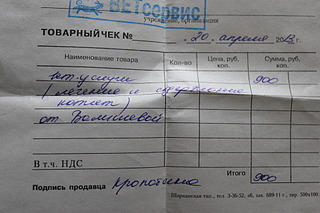 ВЕТСЕРВИС
Учреждение, организация
ТОВАРНЫЙ ЧЕК № 20 апреля 2013 г.
Наименование товара Кол-во Цена, руб, коп. Сумма, руб, коп.
вет-услуги 900
(лечение и содержание
котят)
от Валишевой
В т.ч. НДС
Итого 900
Подпись продавца
Шарканская тип., тел. 3-36-52, об, зак. 689-11 г., тир. 500х100